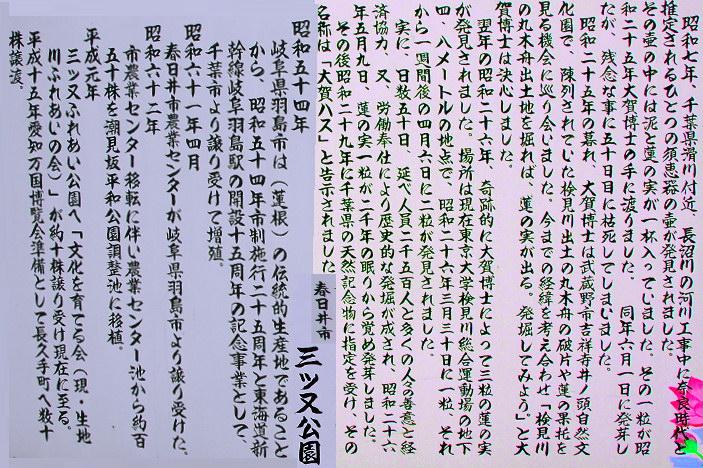 昭和七年、千葉県滑川付近、長沼川の河川工事中に奈良時代と
推定されるひとつの須恵器の壺が発見されました。
その壺の中には泥と蓮の実が一杯入っていました。その一粒が昭
和二十五年大賀博士の手に渡りました。 同年六月一日に発芽し
たが、残念な事に五十日目に枯死してしまいました。
昭和二十五年の暮れ、大賀博士は武蔵野市吉祥寺井ノ頭自然文
化園で、陳列されていた検見川出土の丸木舟の破片や蓮の果托を
見る機会に巡り合いました。今までの経緯を考え合わせ「検見川
の丸木舟出土地を掘れば、蓮の実が出る。発掘してみよう。」と大
賀博士は決心しました。
翌年の昭和二十六年、奇跡的に大賀博士によって三粒の蓮の実
が発見されました。場所は現在東京大学検見川総合運動場の地下
四、八メートルの地点で、昭和二十六年三月三十日に一粒、それ
から一週間後の四月六日に二粒が発見されました。
実に、日数五十日、延べ人員二千五百人と多くの人々の善意と経
済協力、又、労働奉仕により歴史的な発掘が成され、昭和二十六
年五月九日、蓮の実一粒が二千年の眠りから覚め発芽しました。
その後昭和二十九年に千葉県の天然記念物に指定を受け、その
名称は「大賀ハス」と告示されました
春日井市
三ッ又公園
昭和五十四年
岐阜県羽島市は(蓮根)の伝統的生産地であること
から、昭和五十四年市制施行二十五周年と東海道新
幹線岐阜羽島駅の開設十五周年の記念事業として、
千葉市より譲り受けて増殖。
昭和六十一年四月
春日井市農業センターが岐阜県羽島市より譲り受けた。
昭和六十二年
市農業センター移転に伴い農業センター池から約百
五十株を潮見坂平和公園調整池に移植。
平成元年
三ッ又ふれあい公園へ「文化を育てる会(現・生地
川ふれあいの会)」が約十株譲り受け現在に至る。
平成十五年愛知万国博覧会準備として長久手町へ数十
株譲渡。